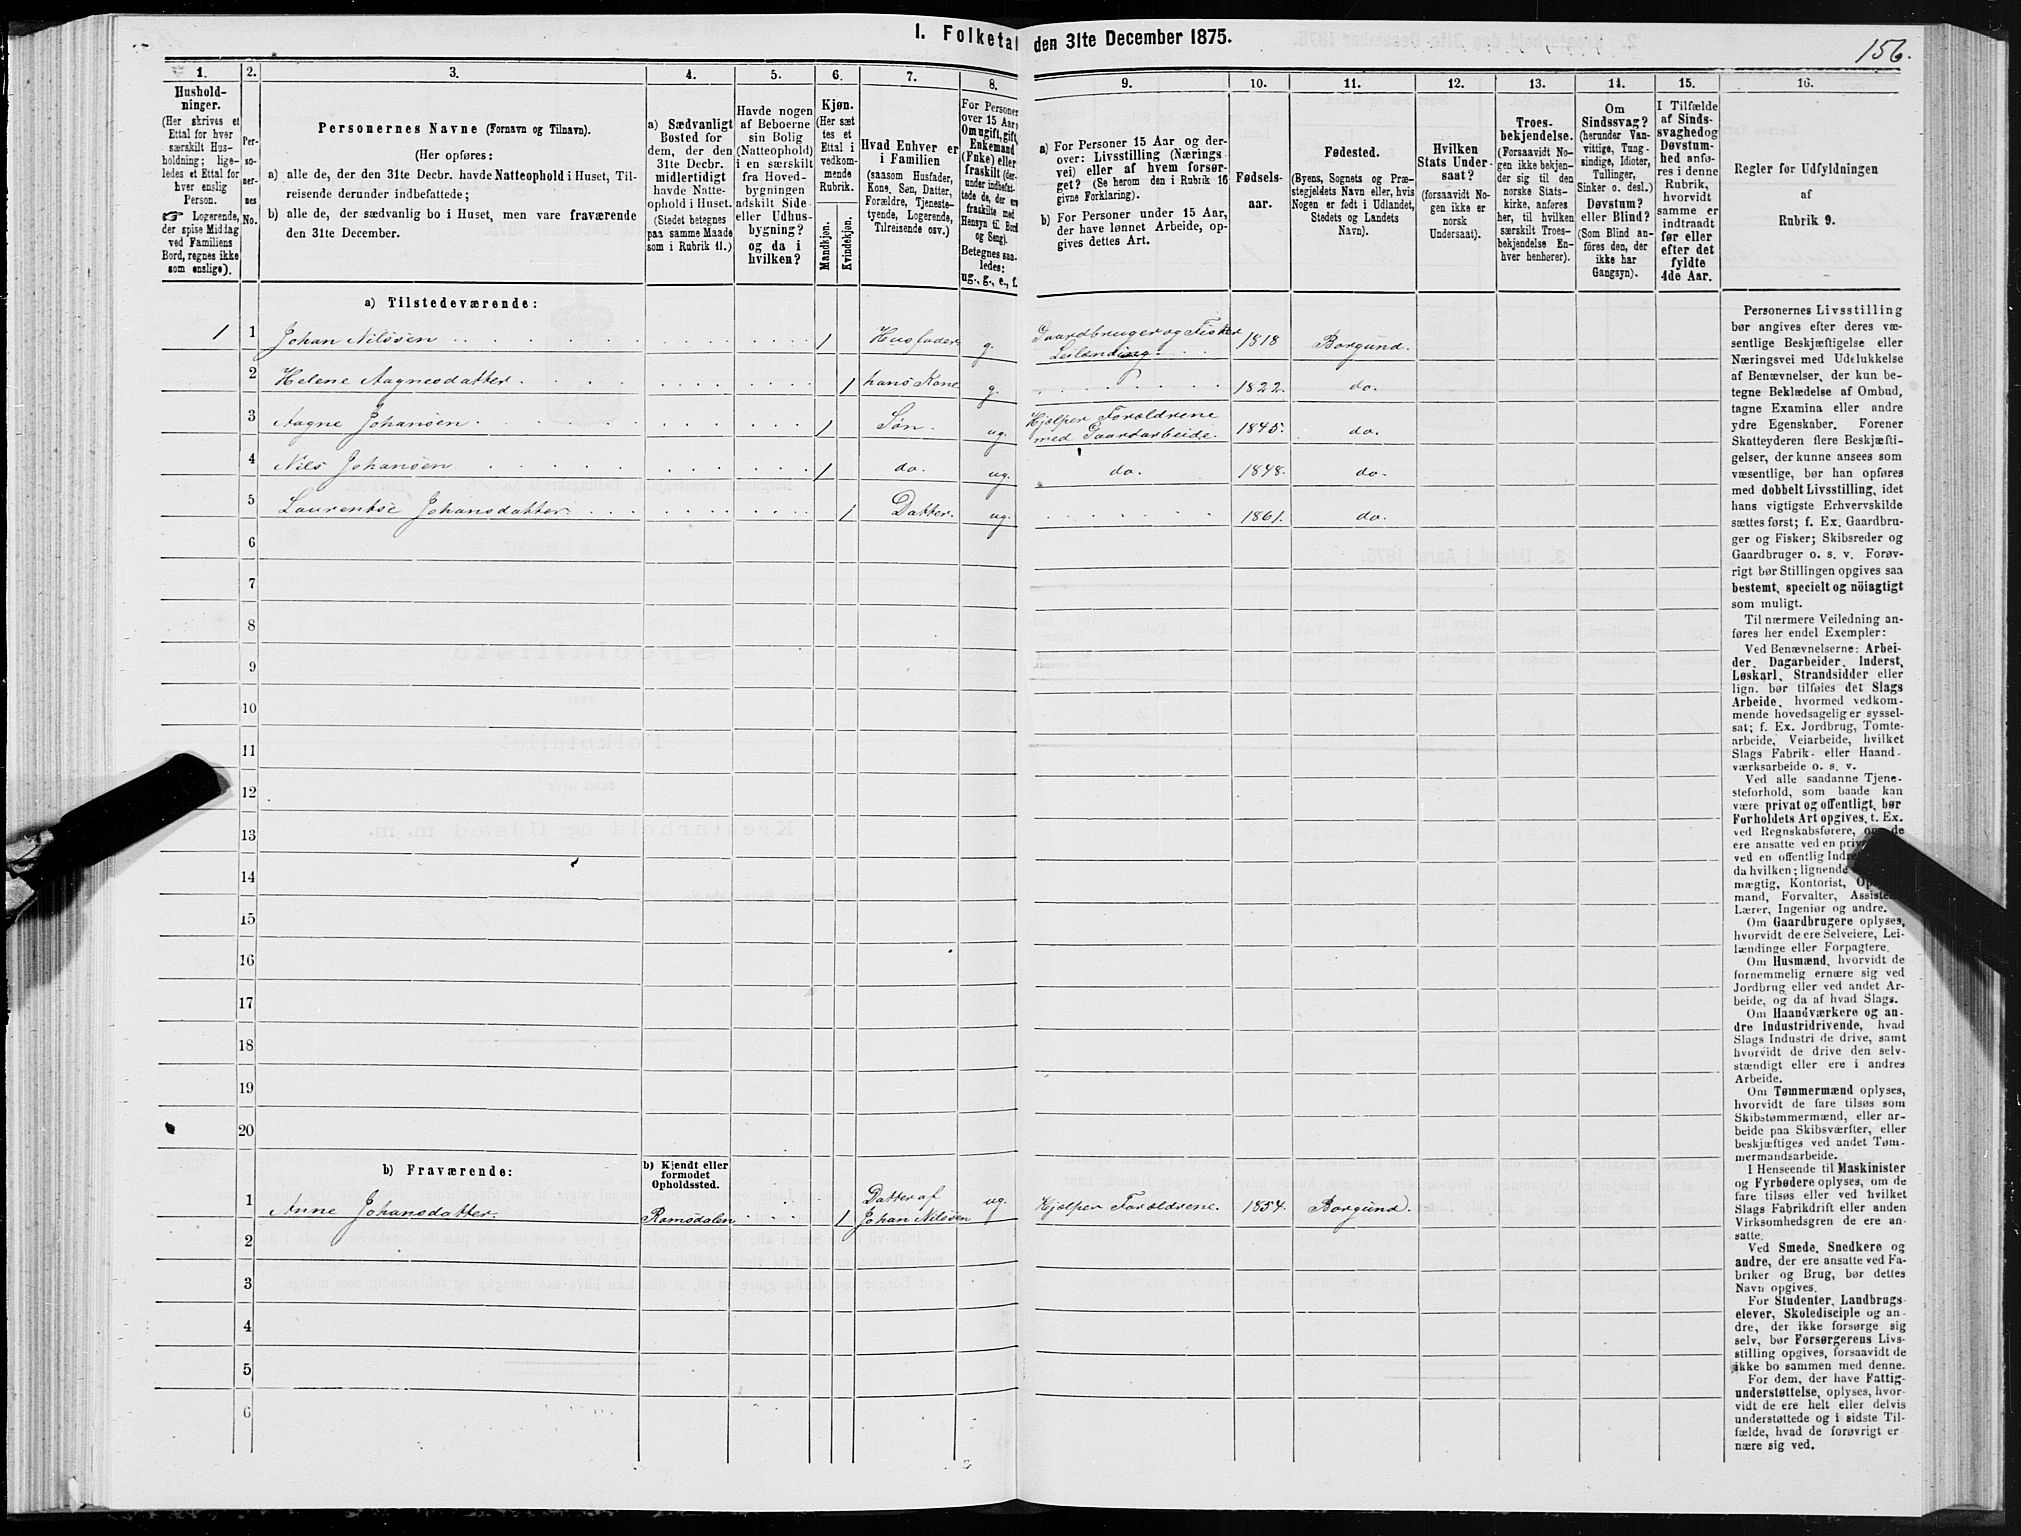 I. Folketal den 31te December 1875.
156.
1.
Hushold-
ninger.
(Her skrives et
Ettal for hver
særskilt Hus-
holdning; lige-
ledes et Ettal for
hver enslig
Person.
☞ Logerende,
der spise Middag
ved Familiens
Bord, regnes ikke
som enslige).
2.
Per-
so-
ner-
nes
No.
3.
Personernes Navne (Fornavn og Tilnavn).
(Her opføres:
a) alle de, der den 31te Decbr. havde Natteophold i Huset, Til-
reisende derunder indbefattede;
b) alle de, der sædvanlig bo i Huset, men vare fraværende
den 31te December.
4.
a) Sædvanligt
Bosted for
dem, der den
31te Decbr.
midlertidigt
havde Natte-
ophold i Huset.
(Stedet betegnes
paa samme Maade
som i Rubrik 11.)
5.
Havde nogen
af Beboerne
sin Bolig
(Natteophold)
i en særskilt
fra Hoved-
bygningen
adskilt Side-
eller Udhus-
bygning?
og da i
hvilken?
6.
Kjøn.
(Her sæt-
tes et
Ettal i
vedkom-
mende
Rubrik.
Mandkjøn.
Kvindekjøn.
7.
Hvad Enhver er
i Familien
(saasom Husfader,
Kone, Søn, Datter,
Forældre, Tjeneste-
tyende, Logerende,
Tilreisende osv.)
8.
For Personer
over 15 Aar,
Om ugift, gift,
Enkemand
(Enke) eller
fraskilt (der-
under indbefat-
tede de, der ere
fraskilte med
Hensyn til Bord
og Seng).
Betegnes saa-
ledes:
ug., g., e., f.
9.
a) For Personer 15 Aar og der-
over: Livsstilling (Nærings-
vei) eller af hvem forsør-
get? (Se herom den i Rubrik 16
givne Forklaring).
b) For Personer under 15 Aar,
der have lønnet Arbeide, op-
gives dettes Art.
10.
Fødsels-
aar.
11.
Fødested.
(Byens, Sognets og Præ-
stegjeldets Navn eller, hvis
Nogen er født i Udlandet,
Stedets og Landets
Navn).
12.
Hvilken
Stats Under-
saat?
(forsaavidt No-
gen ikke er
norsk
Undersaat).
13.
Troes-
bekjendelse.
(Forsaavidt No-
gen ikke bekjen-
der sig til den
norske Stats-
kirke, anføres
her, til hvilken
særskilt Troes-
bekjendelse En-
hver henhører).
14.
Om
Sindssvag?
(herunder Van-
vittige, Tung-
sindige, Idioter,
Tullinger,
Sinker o. desl.)
Døvstum?
eller Blind?
(Som Blind an-
føres den, der
ikke har
Gangsyn).
15.
I Tilfælde
af Sinds-
svaghed og
Døvstum-
hed anfø-
res i denne
Rubrik,
hvorvidt
samme er
indtraadt
før eller
efter det
fyldte
4de Aar.
16.
Regler for Udfyldningen
af
Rubrik 9.
a) Tilstedeværende:
1 1 Johan Nilssen 1 Husfader g. Gaardbruger og Fisker Leilænding. 1818 Borgund.
2 Helene Aagnesdatter. 1 hans Kone g. 1822. do.
3 Aagne Johansen 1 Søn. ug. Hjælper Forældrene med Gaardarbeide. 1845. do.
4 Nils Johansen 1 do. ug. do. 1848. do.
5 Laurentse Johansdatter 1 Datter. ug. 1861. do.
6
7
8
9
10
11
12
13
14
15
16
17
18
19
20
b) Fraværende:
b) Kjendt eller
formodet
Opholdssted.
1 Anne Johansdatter. Romsdalen 1 Datter af Johan Nilssen ug. Hjælper Forældrene. 1854. Borgund.
2
3
4
5
6
Personernes Livsstilling
bør angives efter deres væ-
sentlige Beskjæftigelse eller
Næringsvei med Udelukkelse
af Benævnelser, der kun be-
tegne Beklædelse af Ombud,
tagne Examina eller andre
ydre Egenskaber. Forener
Skatteyderen flere Beskjæfti-
gelser, der kunne ansees som
væsentlige, bør han opføres
med dobbelt Livsstilling, idet
hans vigtigste Erhvervskilde
sættes først; f. Ex. Gaardbru-
ger og Fisker; Skibsreder og
Gaardbruger o. s. v. Forøv-
rigt bør Stillingen opgives saa
bestemt, specielt og nöiagtigt
som muligt.
Til nærmere Veiledning an-
føres her endel Exempler:
Ved Benævnelserne: Arbei-
der, Dagarbeider, Inderst,
Løskarl, Strandsidder eller
lign. bør tilføies det Slags
Arbeide, hvormed vedkom-
mende hovedsagelig er syssel-
sat; f. Ex. Jordbrug, Tomte-
arbeide, Veiarbeide, hvilket
Slags Fabrik- eller Haand-
værksarbeide o. s. v.
Ved alle saadanne Tjene-
steforhold, som baade kan
være privat og offentligt, bør
Forholdets Art opgives, t. Ex.
ved Regnskabsførere, om de
ere ansatte ved en
ved en offentlig
da hvilken; lignende
mægtig, Kontorist,
mand, Forvalter,
Lærer, Ingeniør og andre.
Om Gaardbrugere oplyses,
hvorvidt de ere Selveiere, Lei-
lændinge eller Forpagtere.
Om Husmænd, hvorvidt de
fornemmelig ernære sig ved
Jordbrug eller ved andet Ar-
beide, og da af hvad Slags.
Om Haandværkere og an-
dre Industridrivende, hvad
Slags Industri de drive, samt
hvorvidt de drive den selv-
stændigt eller ere i andres
Arbeide.
Om Tømmermænd oplyses,
hvorvidt de fare tilsøs som
Skibstømmermænd, eller ar-
beide paa Skibsværfter, eller
beskjæftiges ved andet Tøm-
mermandsarbeide.
I Henseende til Maskinister
og Fyrbødere oplyses, om de
fare tilsøs eller ved hvilket
Slags Fabrikdrift eller anden
Virksomhedsgren de ere an-
satte.
Ved Smede, Snedkere og
andre, der ere ansatte ved Fa-
briker og Brug, bør dettes
Navn opgives.
For Studenter, Landbrugs-
elever, Skoledisciple og an-
dre, der ikke forsørge sig
selv, bør Forsørgerens Livs-
stilling opgives, forsaavidt de
ikke bo sammen med denne.
For dem, der have Fattig-
understøttelse, oplyses, hvor-
vidt de ere helt eller delvis
understøttede og i sidste Til-
fælde, hvad de forøvrigt er-
nære sig ved.